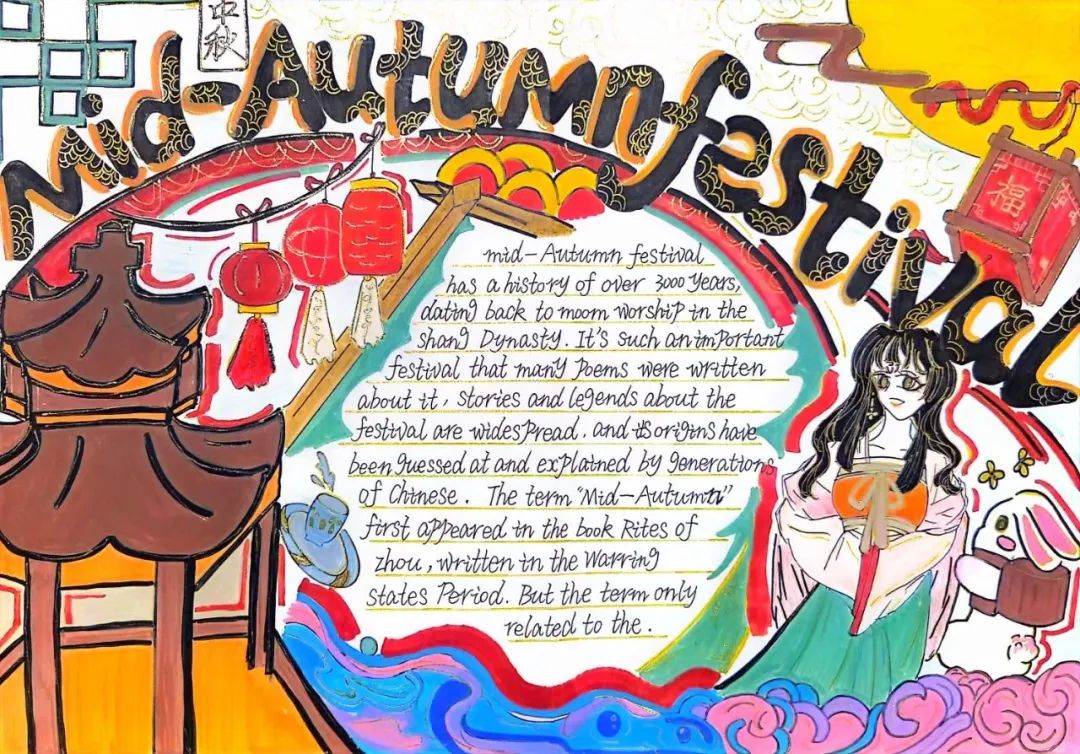 中秋
Mid-Autumn festival
福
mid-Autumn festival
has a history of over 3000 years,
dating back to moom worship in the
shang Dynasty. It's such an important
festival that many poems were written
about it, stories and legends about the
festival are widespread. and its origins have
been guessed at and explained by generations
of Chinese. The term "Mid-Autumn"
first appeared in the book Rites of
zhou, written in the Warring
States Period. But the term only
related to the.